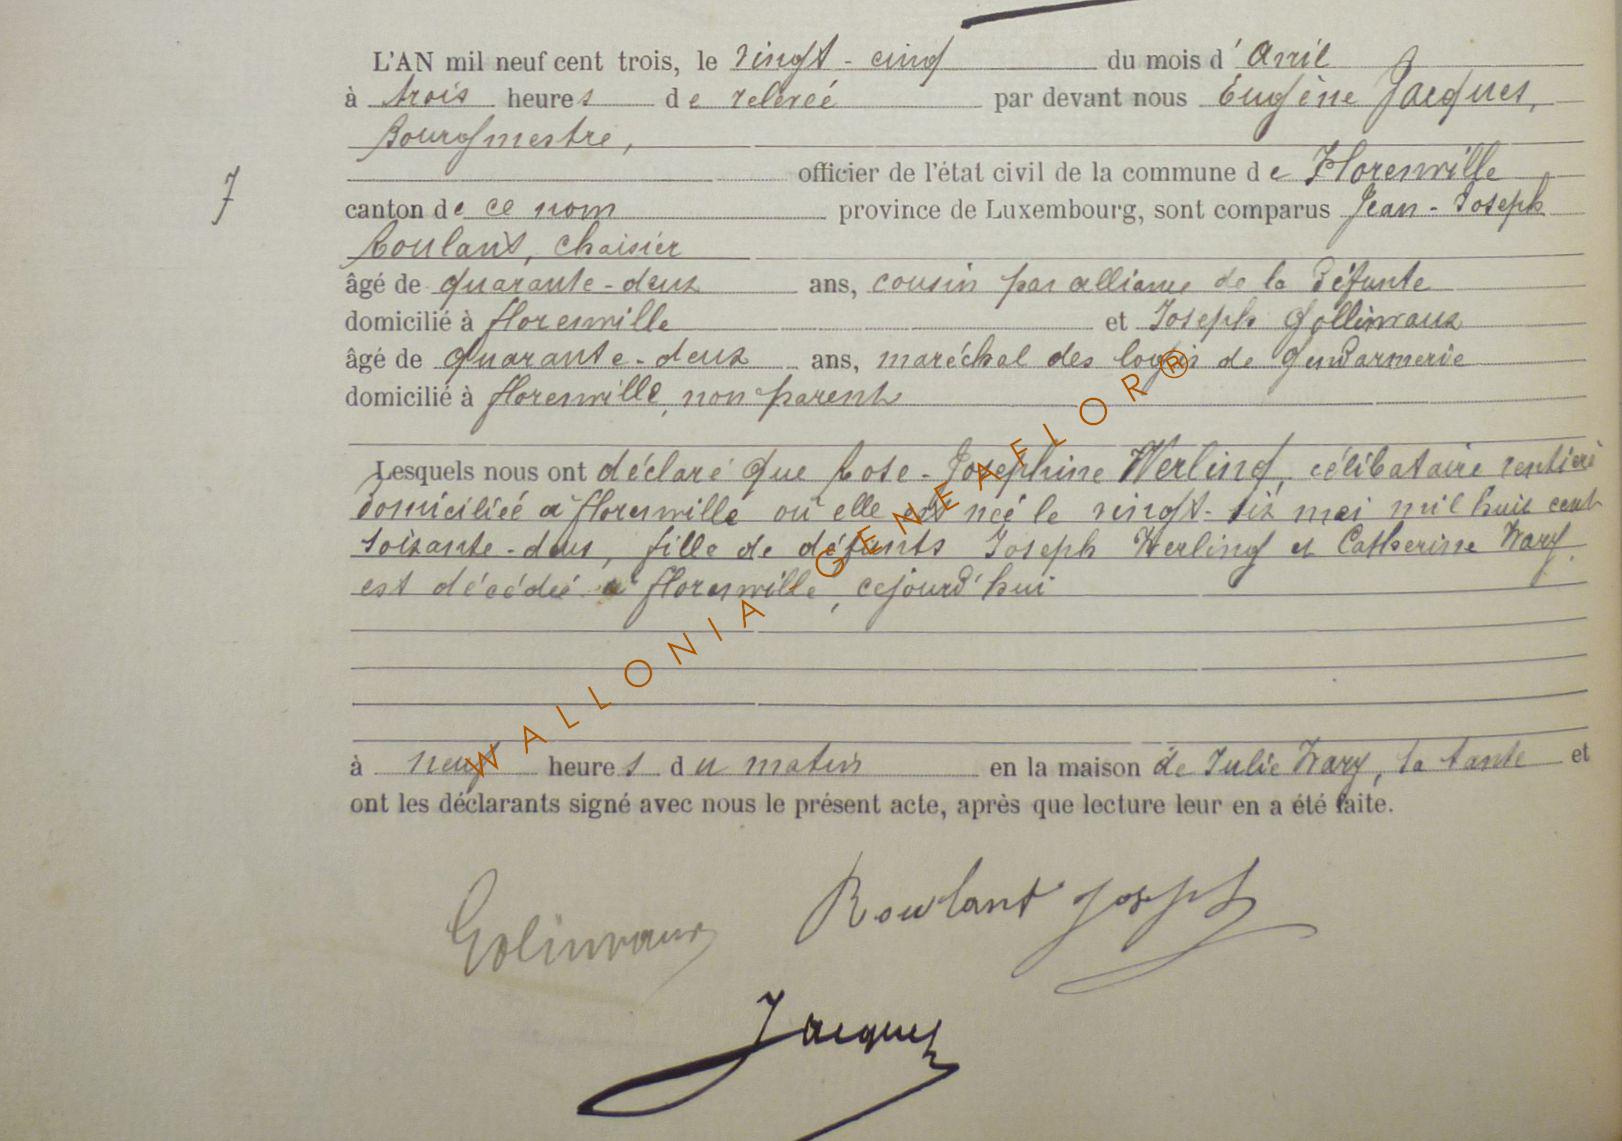 L'AN mil neuf cent trois, le vingt-cinq du mois d'avril
à trois heures de relevée par devant nous Eugène Jacques,
Bourgmestre,
officier de l'état civil de la commune de Florenville
7
canton de ce nom province de Luxembourg, sont comparus Jean-Joseph
Roulant, chaisier
âgé de quarante-deux ans, cousin par alliance de la défunte
domicilié à florenville et Joseph Gollinvaux
âgé de quarante-deux ans, maréchal des logis de gendarmerie
domicilié à florenville, non parent
Lesquels nous ont déclaré que Rose-Josephine Werling, célibataire rentière
domiciliée à florenville où elle est née le vingt-six mai mil huit cent
soixante-deux, fille de défunts Joseph Werling et Catherine Wary
est décédée à florenville, cejourd'hui
à neuf heures du matin en la maison de Julie Wary, sa tante et
ont les déclarants signé avec nous le présent acte, après que lecture leur en a été faite.
Golinvaux Roulant Joseph
Jacques
WALLONIA GENEAFLOR®